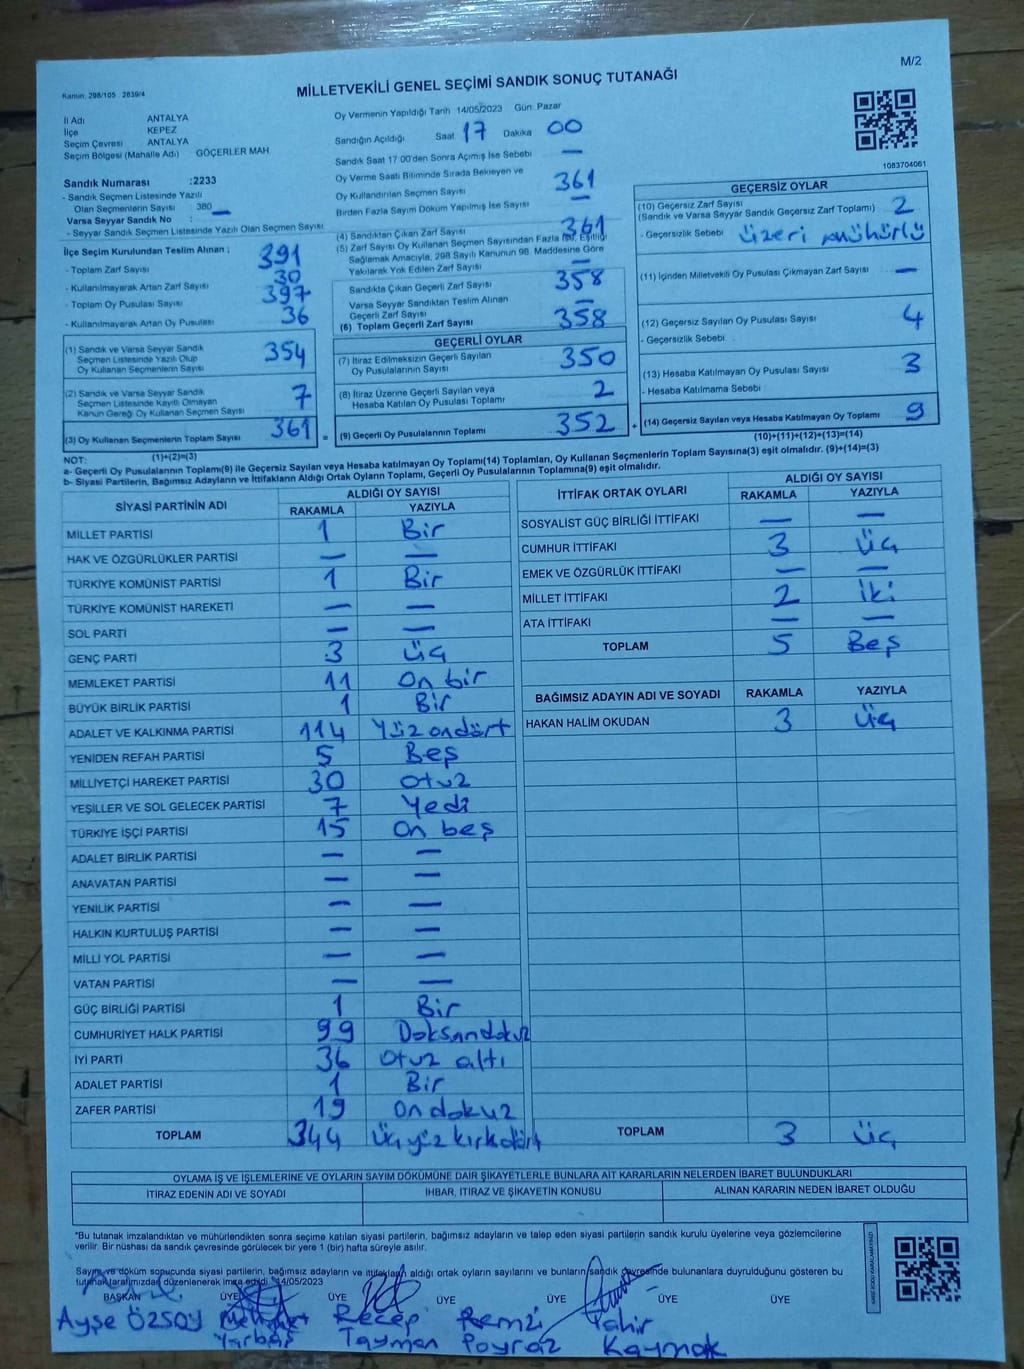 M/2
MİLLETVEKİLİ GENEL SEÇİMİ SANDIK SONUÇ TUTANAĞI
Kanun: 298/105 2839/4
İl Adı ANTALYA
İlçe KEPEZ
Seçim Çevresi ANTALYA
Seçim Bölgesi (Mahalle Adı) GÖÇERLER MAH
Sandık Numarası :2233
- Sandık Seçmen Listesinde Yazılı
Olan Seçmenlerin Sayısı 380
Varsa Seyyar Sandık No : —
- Seyyar Sandık Seçmen Listesinde Yazılı Olan Seçmen Sayısı
İlçe Seçim Kurulundan Teslim Alınan ;
- Toplam Zarf Sayısı 391
- Kullanılmayarak Artan Zarf Sayısı 30
- Toplam Oy Pusulası Sayısı 397
- Kullanılmayarak Artan Oy Pusulası 36
(1) Sandık ve Varsa Seyyar Sandık
Seçmen Listesinde Yazılı Olup
Oy Kullanan Seçmenlerin Sayısı 354
(2) Sandık ve Varsa Seyyar Sandık
Seçmen Listesinde Kayıtlı Olmayan
Kanun Gereği Oy Kullanan Seçmen Sayısı 7
(3) Oy Kullanan Seçmenlerin Toplam Sayısı 361 =
(1)+(2)=(3)
Oy Vermenin Yapıldığı Tarih 14/05/2023 Gün Pazar
Sandığın Açıldığı Saat 17 Dakika 00
Sandık Saat 17:00'den Sonra Açılmış İse Sebebi —
Oy Verme Saati Bitiminde Sırada Bekleyen ve
Oy Kullandırılan Seçmen Sayısı 361
Birden Fazla Sayım Döküm Yapılmış İse Sayısı —
(4) Sandıktan Çıkan Zarf Sayısı 361
(5) Zarf Sayısı Oy Kullanan Seçmen Sayısından Fazla İse, Eşitliği
Sağlamak Amacıyla, 298 Sayılı Kanunun 98. Maddesine Göre
Yakılarak Yok Edilen Zarf Sayısı —
Sandıkta Çıkan Geçerli Zarf Sayısı 358
Varsa Seyyar Sandıktan Teslim Alınan
Geçerli Zarf Sayısı —
(6) Toplam Geçerli Zarf Sayısı 358
GEÇERLİ OYLAR
(7) İtiraz Edilmeksizin Geçerli Sayılan
Oy Pusulalarının Sayısı 350
(8) İtiraz Üzerine Geçerli Sayılan veya
Hesaba Katılan Oy Pusulası Toplamı 2
(9) Geçerli Oy Pusulalarının Toplamı 352 +
1083704061
GEÇERSİZ OYLAR
(10) Geçersiz Zarf Sayısı 2
(Sandık ve Varsa Seyyar Sandık Geçersiz Zarf Toplamı)
- Geçersizlik Sebebi üzeri mühürlü
(11) İçinden Milletvekili Oy Pusulası Çıkmayan Zarf Sayısı —
(12) Geçersiz Sayılan Oy Pusulası Sayısı 4
- Geçersizlik Sebebi
(13) Hesaba Katılmayan Oy Pusulası Sayısı 3
- Hesaba Katılmama Sebebi
(14) Geçersiz Sayılan veya Hesaba Katılmayan Oy Toplamı 9
(10)+(11)+(12)+(13)=(14)
NOT:
a- Geçerli Oy Pusulalarının Toplamı(9) ile Geçersiz Sayılan veya Hesaba katılmayan Oy Toplamı(14) Toplamları, Oy Kullanan Seçmenlerin Toplam Sayısına(3) eşit olmalıdır. (9)+(14)=(3)
b- Siyasi Partilerin, Bağımsız Adayların ve İttifakların Aldığı Ortak Oyların Toplamı, Geçerli Oy Pusulalarının Toplamına(9) eşit olmalıdır.
SİYASİ PARTİNİN ADI ALDIĞI OY SAYISI
RAKAMLA YAZIYLA
MİLLET PARTİSİ 1 Bir
HAK VE ÖZGÜRLÜKLER PARTİSİ — —
TÜRKİYE KOMÜNİST PARTİSİ 1 Bir
TÜRKİYE KOMÜNİST HAREKETİ — —
SOL PARTİ — —
GENÇ PARTİ 3 üç
MEMLEKET PARTİSİ 11 On bir
BÜYÜK BİRLİK PARTİSİ 1 Bir
ADALET VE KALKINMA PARTİSİ 114 Yüz ondört
YENİDEN REFAH PARTİSİ 5 Beş
MİLLİYETÇİ HAREKET PARTİSİ 30 otuz
YEŞİLLER VE SOL GELECEK PARTİSİ 7 Yedi
TÜRKİYE İŞÇİ PARTİSİ 15 On beş
ADALET BİRLİK PARTİSİ — —
ANAVATAN PARTİSİ — —
YENİLİK PARTİSİ — —
HALKIN KURTULUŞ PARTİSİ — —
MİLLİ YOL PARTİSİ — —
VATAN PARTİSİ — —
GÜÇ BİRLİĞİ PARTİSİ 1 Bir
CUMHURİYET HALK PARTİSİ 99 Doksandokuz
İYİ PARTİ 36 otuz altı
ADALET PARTİSİ 1 Bir
ZAFER PARTİSİ 19 on dokuz
TOPLAM 344 üçyüz kırkdört
İTTİFAK ORTAK OYLARI ALDIĞI OY SAYISI
RAKAMLA YAZIYLA
SOSYALİST GÜÇ BİRLİĞİ İTTİFAKI — —
CUMHUR İTTİFAKI 3 üç
EMEK VE ÖZGÜRLÜK İTTİFAKI — —
MİLLET İTTİFAKI 2 iki
ATA İTTİFAKI — —
TOPLAM 5 Beş
BAĞIMSIZ ADAYIN ADI VE SOYADI RAKAMLA YAZIYLA
HAKAN HALİM OKUDAN 3 üç
TOPLAM 3 üç
OYLAMA İŞ VE İŞLEMLERİNE VE OYLARIN SAYIM DÖKÜMÜNE DAİR ŞİKAYETLERLE BUNLARA AİT KARARLARIN NELERDEN İBARET BULUNDUKLARI
İTİRAZ EDENİN ADI VE SOYADI İHBAR, İTİRAZ VE ŞİKAYETİN KONUSU ALINAN KARARIN NEDEN İBARET OLDUĞU
*Bu tutanak imzalandıktan ve mühürlendikten sonra seçime katılan siyasi partilerin, bağımsız adayların ve talep eden siyasi partilerin sandık kurulu üyelerine veya gözlemcilerine
verilir. Bir nüshası da sandık çevresinde görülecek bir yere 1 (bir) hafta süreyle asılır.
Sayım ve döküm sonucunda siyasi partilerin, bağımsız adayların ve ittifakların aldığı ortak oyların sayılarını ve bunların sandık çevresinde bulunanlara duyrulduğunu gösteren bu
tutanak tarafımızdan düzenlenerek imza edildi. 14/05/2023
BAŞKAN ÜYE ÜYE ÜYE ÜYE ÜYE ÜYE
Ayşe ÖZSOY Mehmet Recep Remzi Tahir
Yarbaş Tayman Poyraz Kaymak